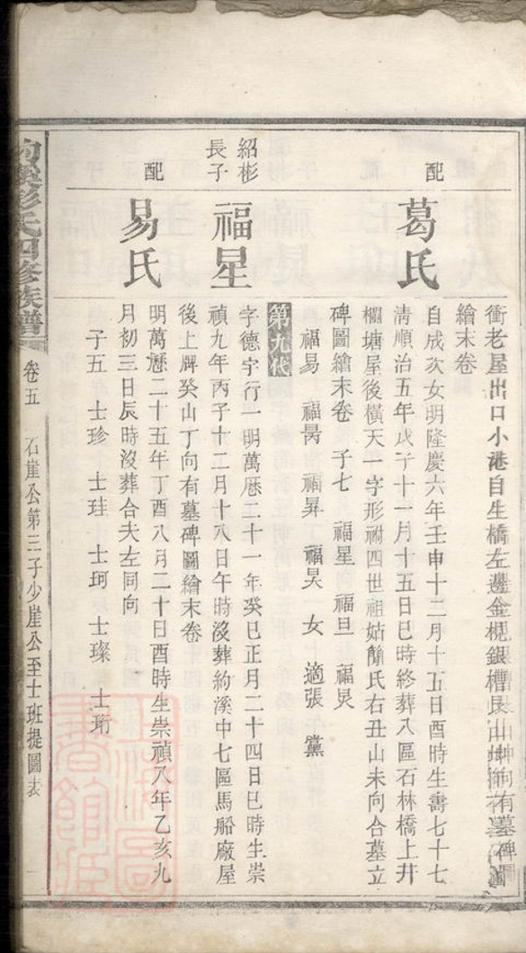 衝老屋出口小港自生橋左邊金槴銀槽艮山坤向有墓碑圖
繪末卷
配
葛氏
自成次女明隆慶六年壬申十二月十五日酉時生壽七十七
清順治五年戊子十一月十五日巳時終葬八區石林橋上井
欄塘屋後橫天一字形祔四世祖姑簡氏右丑山未向合墓立
碑圖繪末卷 子七 福星 福旦 福炅
福易 福昺 福昇 福昊 女 適張 黨
第九代
紹彬
長子
福星
字德宇行一明萬歷二十一年癸巳正月二十四日巳時生崇
禎九年丙子十二月十八日午時沒葬約溪中七區馬船廠屋
後上牌癸山丁向有墓碑圖繪末卷
配
易氏
明萬歷二十五年丁酉八月二十日酉時生崇禎八年乙亥九
月初三日辰時沒葬合夫左同向
子五 士珍 士珪 士珂 士璨 士珩
約溪彭氏四修族譜
卷五 石崖公第三子少崖公至士班提圖表 一